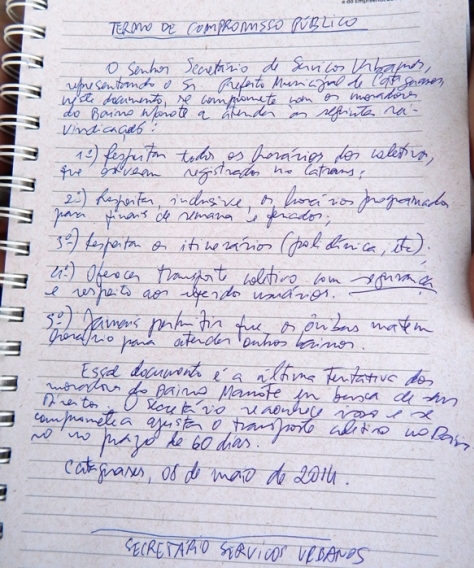 TERMO DE COMPROMISSO PÚBLICO
O Senhor Secretário de Serviços Urbanos,
representando o Sr. Prefeito Municipal de Cataguases,
neste documento, se compromete com os moradores
do Bairro a atender as seguintes rei-
vindicações:
1º) Respeitar todos os horários dos coletivos,
que estejam registrados na Catrans;
2º) Respeitar, inclusive, os horários programados
para finais de semana e feriados;
3º) Respeitar os itinerários (policlínica, etc).
4º) Oferecer transporte coletivo com segurança
e respeito aos usuários.
5º) Jamais permitir que os ônibus matem
horário para atender outros bairros.
Esse documento é a última tentativa dos
moradores do Bairro em busca de seus
Direitos. O Secretário reconhece isso e se
compromete a ajustar o transporte coletivo no Bair-
ro no prazo de 60 dias.
Cataguases, 08 de maio de 2014.
SECRETÁRIO SERVIÇOS URBANOS